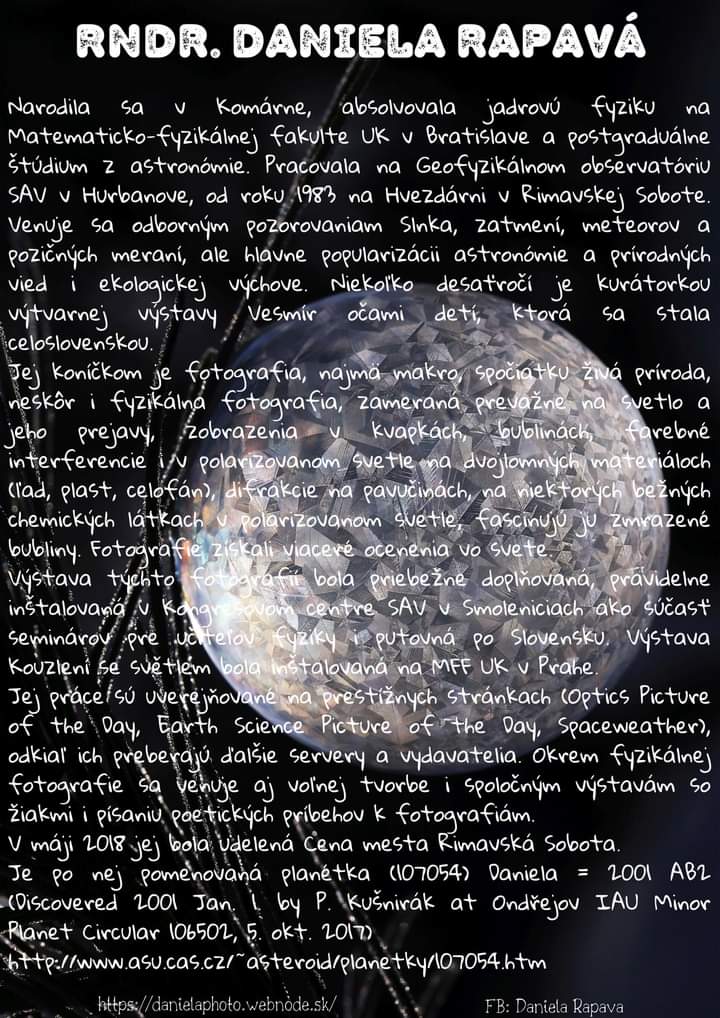 RNDR. DANIELA RAPAVÁ
Narodila sa v Komárne, absolvovala jadrovú fyziku na
Matematicko-fyzikálnej fakulte UK v Bratislave a postgraduálne
štúdium z astronómie. Pracovala na Geofyzikálnom observatóriu
SAV v Hurbanove, od roku 1983 na Hvezdárni v Rimavskej Sobote.
Venuje sa odborným pozorovaniam Slnka, zatmení, meteorov a
pozičných meraní, ale hlavne popularizácii astronómie a prírodných
vied i ekologickej výchove. Niekoľko desaťročí je kurátorkou
výtvarnej výstavy Vesmír očami detí, ktorá sa stala
celoslovenskou.
Jej koníčkom je fotografia, najmä makro, spočiatku živá príroda,
neskôr i fyzikálna fotografia, zameraná prevažne na svetlo a
jeho prejavy, zobrazenia v kvapkách, bublinách, farebné
interferencie i v polarizovanom svetle na dvojlomných materiáloch
(ľad, plast, celofán), difrakcie na pavučinách, na niektorých bežných
chemických látkach v polarizovanom svetle, fascinujú ju zmrazené
bubliny. Fotografie získali viaceré ocenenia vo svete.
Výstava týchto fotografií bola priebežne doplňovaná, pravidelne
inštalovaná v Kongresovom centre SAV v Smoleniciach ako súčasť
seminárov pre učiteľov fyziky i putovná po Slovensku. Výstava
Kouzlení se světlem bola inštalovaná na MFF UK v Prahe.
Jej práce sú uverejňované na prestížnych stránkach (Optics Picture
of the Day, Earth Science Picture of the Day, Spaceweather),
odkiaľ ich preberajú ďalšie servery a vydavatelia. Okrem fyzikálnej
fotografie sa venuje aj voľnej tvorbe i spoločným výstavám so
žiakmi i písaniu poetických príbehov k fotografiám.
V máji 2018 jej bola udelená Cena mesta Rimavská Sobota.
Je po nej pomenovaná planétka (107054) Daniela = 2001 AB2
(Discovered 2001 Jan. 1. by P. Kušnirák at Ondřejov IAU Minor
Planet Circular 106502, 5. okt. 2017)
http://www.asu.cas.cz/~asteroid/planetky/107054.htm
https://danielaphoto.webnode.sk/
FB: Daniela Rapava